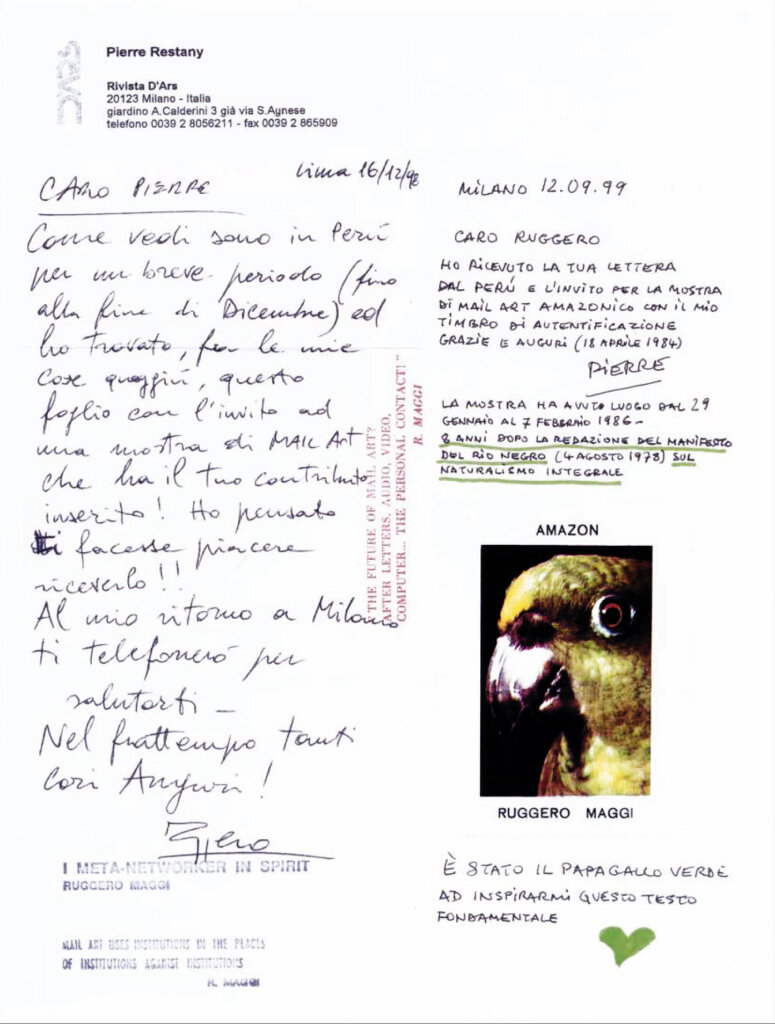 D'ARS
Pierre Restany
Rivista D'Ars
20123 Milano - Italia
giardino A.Calderini 3 già via S.Agnese
telefono 0039 2 8056211 - fax 0039 2 865909
Lima 16/12/98
CARO PIERRE
Come vedi sono in Perú
per un breve periodo (fino
alla fine di Dicembre) ed
ho trovato, fra le mie
cose quaggiù, questo
foglio con l'invito ad
una mostra di MAIL Art
che ha il tuo contributo
inserito! Ho pensato
ti facesse piacere
riceverlo!!
Al mio ritorno a Milano
ti telefonerò per
salutarti –
Nel frattempo tanti
cari Auguri!
I META-NETWORKER IN SPIRIT
RUGGERO MAGGI
MAIL ART USES INSTITUTIONS IN THE PLACES
OF INSTITUTIONS AGAINST INSTITUTIONS
R. MAGGI
THE FUTURE OF MAIL ART?
AFTER LETTERS, AUDIO, VIDEO,
COMPUTER... THE PERSONAL CONTACT!"
R. MAGGI
MILANO 12.09.99
CARO RUGGERO
HO RICEVUTO LA TUA LETTERA
DAL PERÚ E L'INVITO PER LA MOSTRA
DI MAIL ART AMAZONICO CON IL MIO
TIMBRO DI AUTENTIFICAZIONE
GRAZIE E AUGURI (18 APRILE 1984)
PIERRE
LA MOSTRA HA AVUTO LUOGO DAL 29
GENNAIO AL 7 FEBBRAIO 1986 –
8 ANNI DOPO LA REDAZIONE DEL MANIFESTO
DEL RIO NEGRO (4 AGOSTO 1978) SUL
NATURALISMO INTEGRALE
AMAZON
RUGGERO MAGGI
È STATO IL PAPAGALLO VERDE
AD INSPIRARMI QUESTO TESTO
FONDAMENTALE